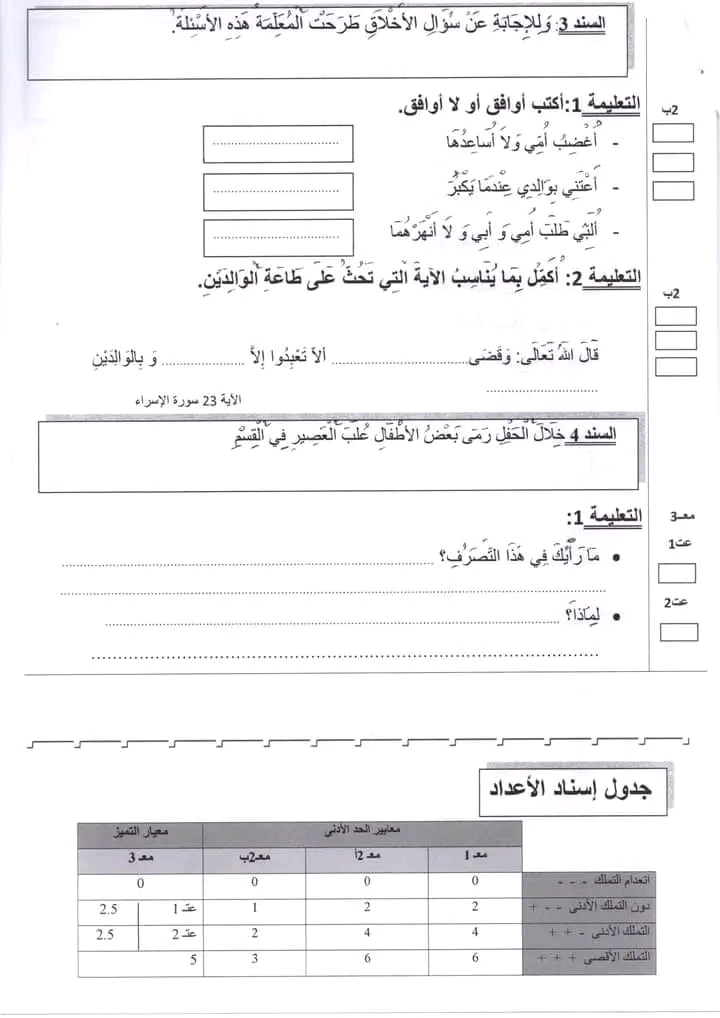 السند 3: وَلِلإِجَابَةِ عَنْ سُؤَالِ الأَخْلاَقِ طَرَحَتْ الْمُعَلِّمَةُ هَذِهِ الأَسْئِلَةُ:
التعليمة 1:أكتب أوافق أو لا أوافق.
2ب
- أُغْضِبُ أُمِّي وَلاَ أُسَاعِدُهَا ..............................
- أَعْتَنِي بِوَالِدِي عِنْدَمَا يَكْبُرُ ..............................
- أُلَبِّي طَلَبَ أُمِي وَ أَبِي وَ لَا أَنْهَرْهُمَا ..............................
التعليمة 2: أُكَمِّلُ بِمَا يُنَاسِبُ الآيَةَ الْتِي تَحُثُّ عَلَى طَاعَةِ الْوَالِدَيْنِ.
2ب
قَالَ اللهُ تَعَالَى: وَقَضَى.............................. ألاَّ تَعْبِدُوا إِلاَّ .................. وَ بِالوَالِدَيْنِ
..............................
الآية 23 سورة الإسراء
السند 4 خِلَالَ الْحَفْلِ رَمَى بَعْضُ الأطْفَالِ عُلَبَ الْعَصِيرِ فِي الْقِسْمِ
التعليمة 1:
معـ3
عت1
• مَا رَأْيُكَ فِي هَذَا التَصَرُفِ؟ ..............................
..............................
عت2
• لِمَاذَا؟ ..............................
..............................
جدول إسناد الأعداد
معايير الحد الأدنى معيار التميز
معـ 1 معـ 2أ معـ2ب معـ 3
انعدام التملك - - - 0 0 0 0
دون التملك الأدنى - - + 2 2 1 عتـ 1 2.5
التملك الأدنى - + + 4 4 2 عتـ 2 2.5
التملك الأقصى + + + 6 6 3 5